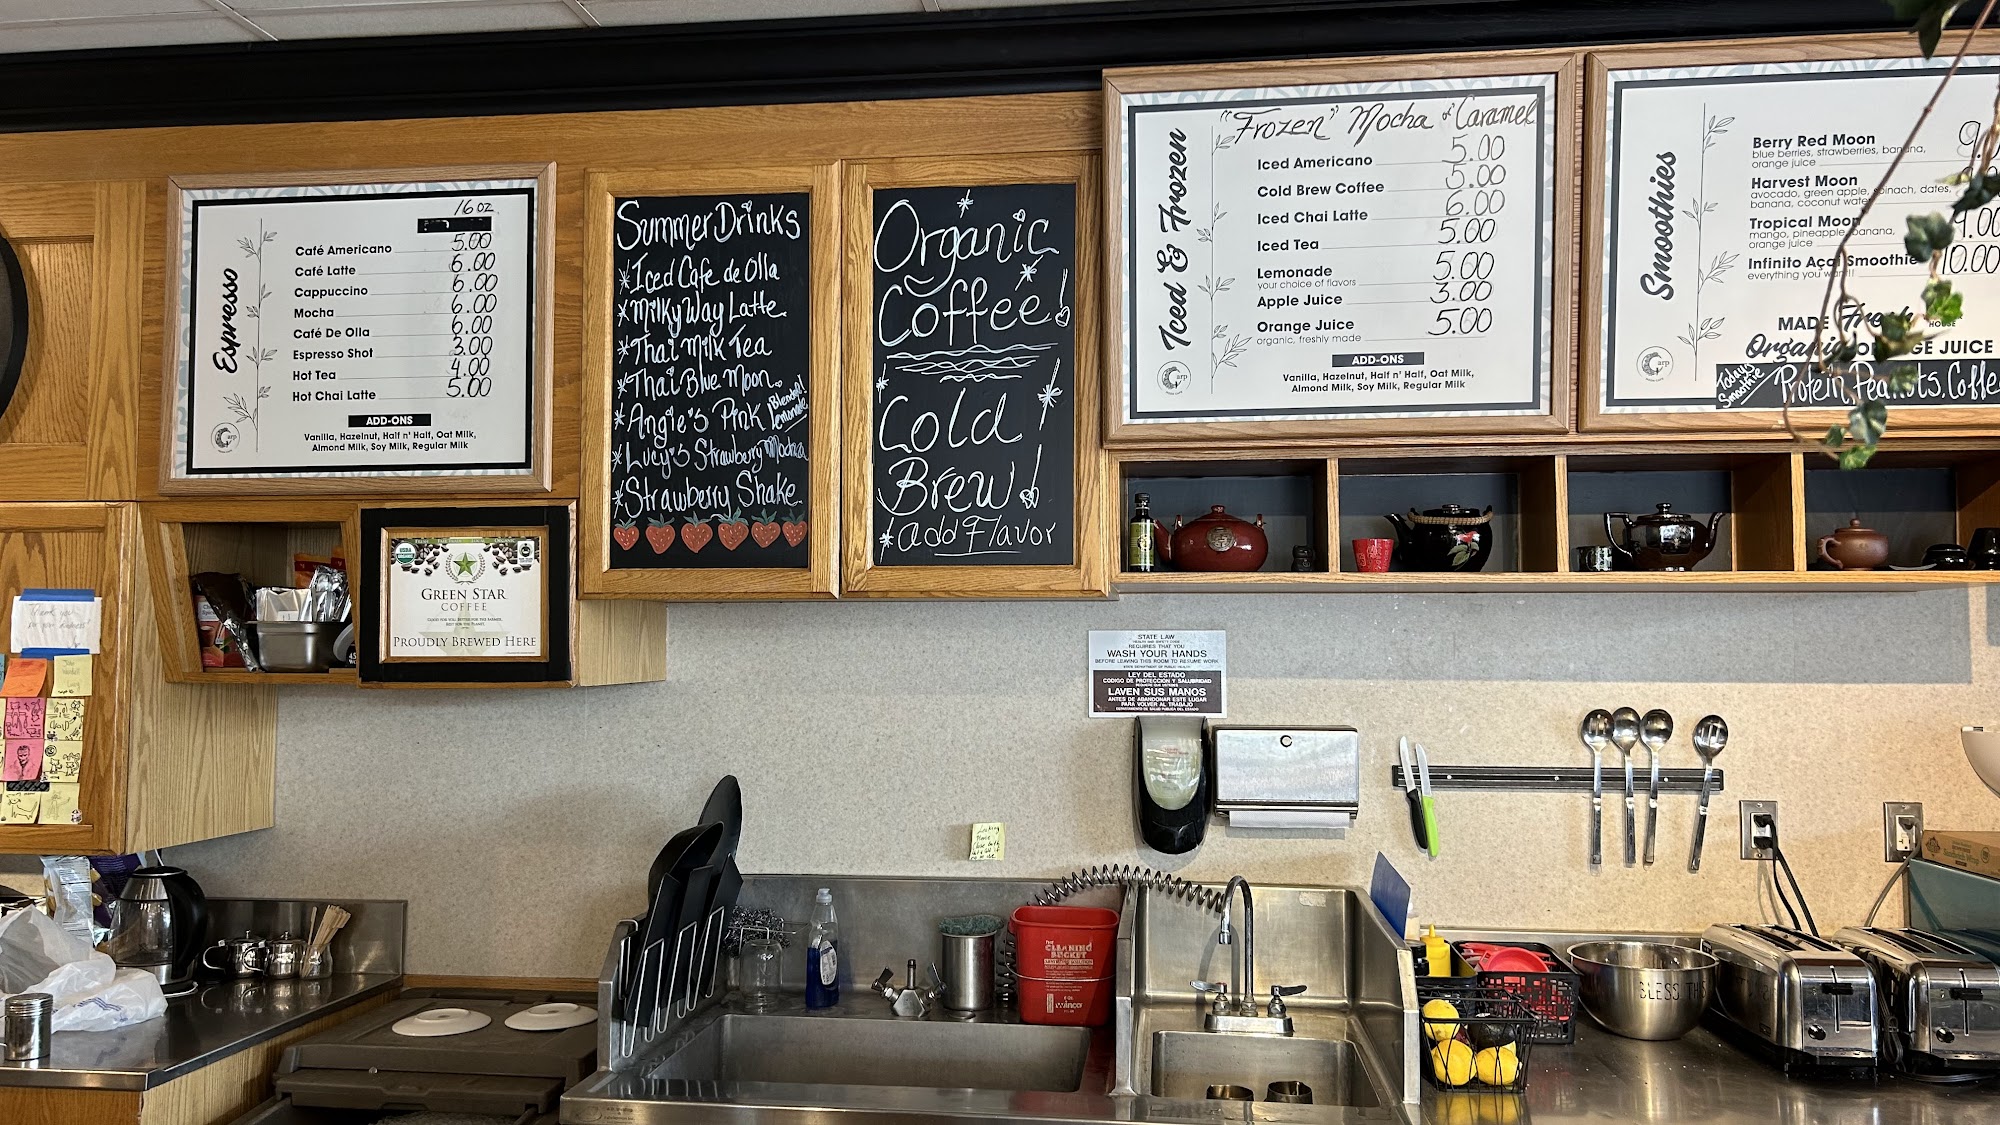 Espresso
16 oz
Café Americano 5.00
Café Latte 6.00
Cappuccino 6.00
Mocha 6.00
Café De Olla 6.00
Espresso Shot 3.00
Hot Tea 4.00
Hot Chai Latte 5.00
ADD-ONS
Vanilla, Hazelnut, Half n' Half, Oat Milk,
Almond Milk, Soy Milk, Regular Milk
arp
GREEN STAR
COFFEE
PROUDLY BREWED HERE
Thank you
Summer Drinks
*Iced Cafe de Olla
*Milky Way Latte
*Thai Milk Tea
*Thai Blue Moon
*Angie's Pink Blended! Lemonade
*Lucy's Strawberry Mocha
*Strawberry Shake
Organic
Coffee!
Cold
Brew!
*add Flavor
Iced & Frozen
"Frozen" Mocha or Caramel 5.00
Iced Americano 5.00
Cold Brew Coffee 5.00
Iced Chai Latte 6.00
Iced Tea 5.00
Lemonade 5.00
your choice of flavors
Apple Juice 3.00
Orange Juice 5.00
organic, freshly made
ADD-ONS
Vanilla, Hazelnut, Half n' Half, Oat Milk,
Almond Milk, Soy Milk, Regular Milk
arp
Smoothies
Berry Red Moon
blue berries, strawberries, banana,
orange juice
Harvest Moon
avocado, green apple, spinach, dates,
banana, coconut water
Tropical Moon 9.00
mango, pineapple, banana,
orange juice
Infinito Açai Smoothie 10.00
everything you want!!
MADE Fresh HOUSE
Organic ORANGE JUICE
Today's Smoothie Protein, Peanuts, Coffee
STATE LAW
REQUIRES THAT YOU
WASH YOUR HANDS
BEFORE LEAVING THIS ROOM TO RESUME WORK
LEY DEL ESTADO
CODIGO DE PROTECCION Y SALUBRIDAD
LAVEN SUS MANOS
ANTES DE ABANDONAR ESTE LUGAR
PARA VOLVER AL TRABAJO
THE
CLEANING
BUCKET
winco
BLESS THIS